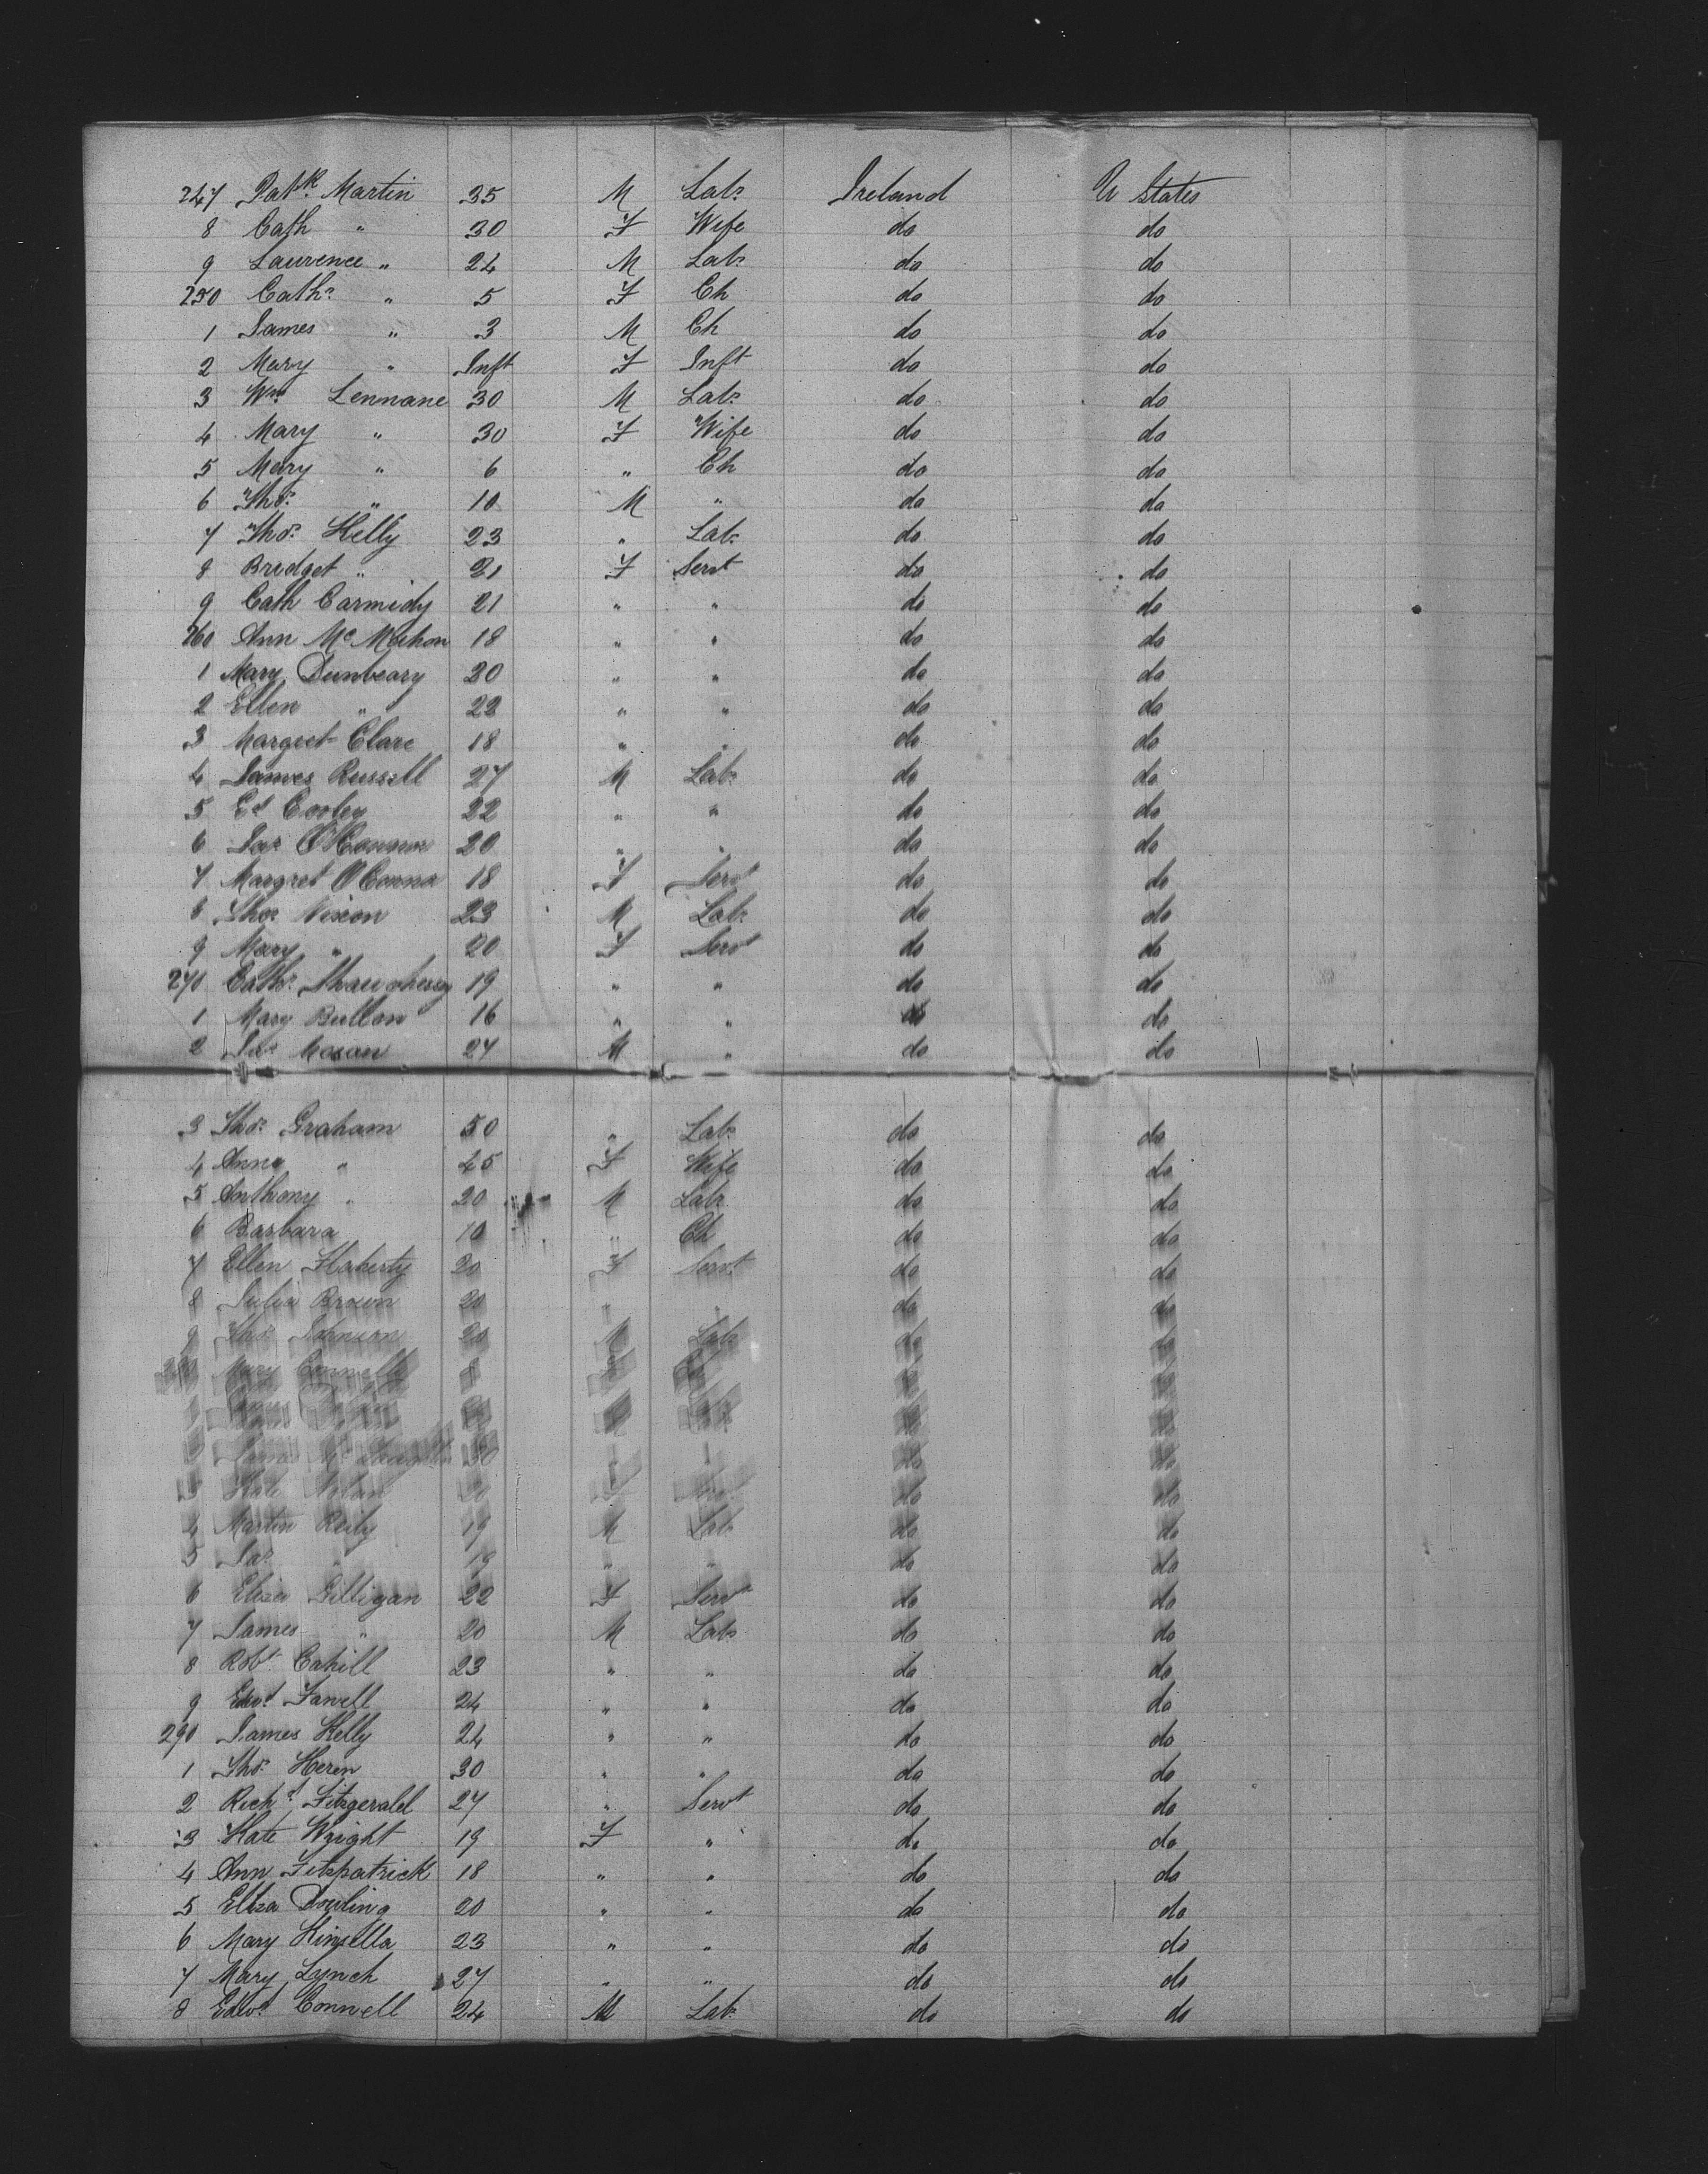 247 Patk Martin 35 M Labr Ireland U States
8 Cath " 30 F Wife do do
9 Laurence " 24 M Labr do do
250 Cathr " 5 F Ch do do
1 James " 3 M Ch do do
2 Mary " Inft F Inft do do
3 Wm Lennane 30 M Labr do do
4 Mary " 30 F Wife do do
5 Mary " 6 " Ch do do
6 Thos " 10 M " do do
7 Thos Kelly 23 " Labr do do
8 Bridget " 21 F Servt do do
9 Cath Carmidy 21 " " do do
260 Ann McMahon 18 " " do do
1 Mary Dunbeary 20 " " do do
2 Ellen " 22 " " do do
3 Margret Clare 18 " " do do
4 James Russell 27 M Labr do do
5 Ed Cooley 22 " " do do
6 Jas O'Connor 20 " " do do
7 Margret O'Connor 18 F Servt do do
8 Thos Nixon 23 M Labr do do
9 Mary " 20 F Servt do do
270 Cathr Shaughnessy 19 " " do do
1 Mary Bullon 16 " " do do
2 Jas Moran 24 M " do do
3 Thos Graham 50 " Labr do do
4 Anne " 45 F Wife do do
5 Anthony " 20 M Labr do do
6 Barbara 10 " Ch do do
7 Ellen Flaherty 20 F Servt do do
8 Julia Brown 20 " " do do
9 Thos Johnson 20 M Labr do do
280 Mary Connelly 8 do do
James do do
James 30 do do
3 Kate Nolan 20 F Servt do do
4 Martin Reily 19 M Labr do do
5 Jas " 19 " " do do
6 Eliza Gilligan 22 F Servt do do
7 James " 20 M Labr do do
8 Robt Cahill 23 " " do do
9 Edwd Fawell 24 " " do do
290 James Kelly 24 " " do do
1 Thos Heren 30 " " do do
2 Richd Fitzgerald 27 " Servt do do
3 Kate Wright 19 F " do do
4 Ann Fitzpatrick 18 " " do do
5 Eliza Dowling 20 " " do do
6 Mary Kinsella 23 " " do do
7 Mary Lynch 27 " " do do
8 Edwd Connell 24 M Labr do do